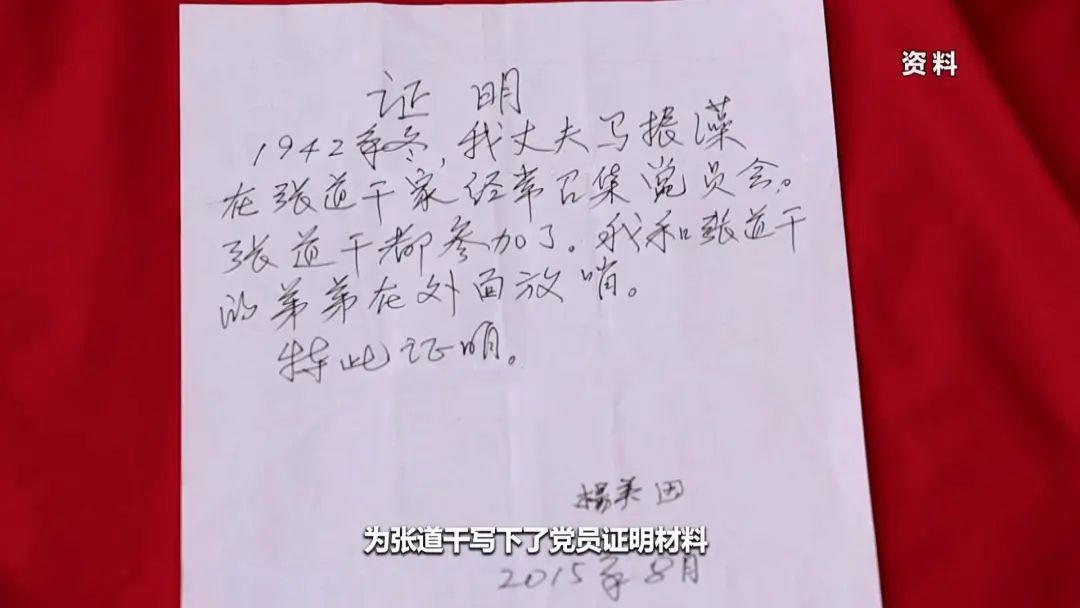 资料
证明
1942年冬,我丈夫马振藻
在张道干家经常召集党员会。
张道干都参加了。我和张道干
的弟弟在外面放哨。
特此证明。
杨美田
为张道干写下了党员证明材料
2015年8月